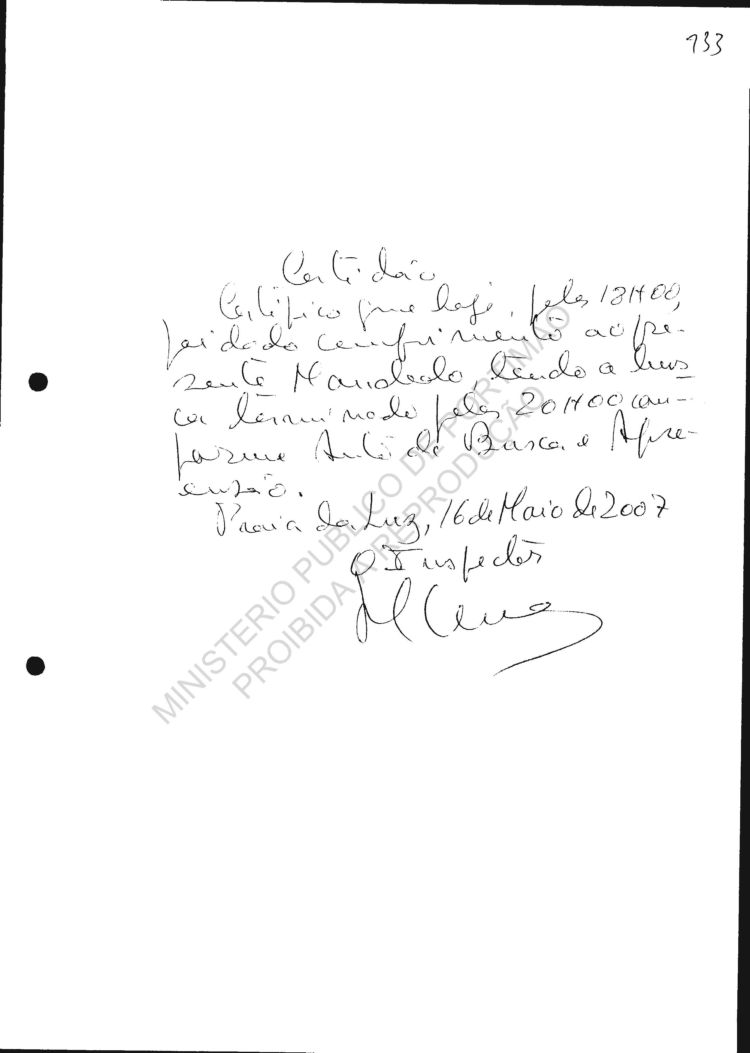 933
Certidão
Certifico que hoje, pelas 18H00,
foi dado cumprimento ao pre-
sente Mandado, tendo a bus-
ca terminado pelas 20H00 con-
forme Auto de Busca e Apre-
ensão.
Praia da Luz, 16 de Maio de 2007
O Inspector
MINISTERIO PUBLICO DE PORTIMÃO
PROIBIDA A REPRODUÇÃO